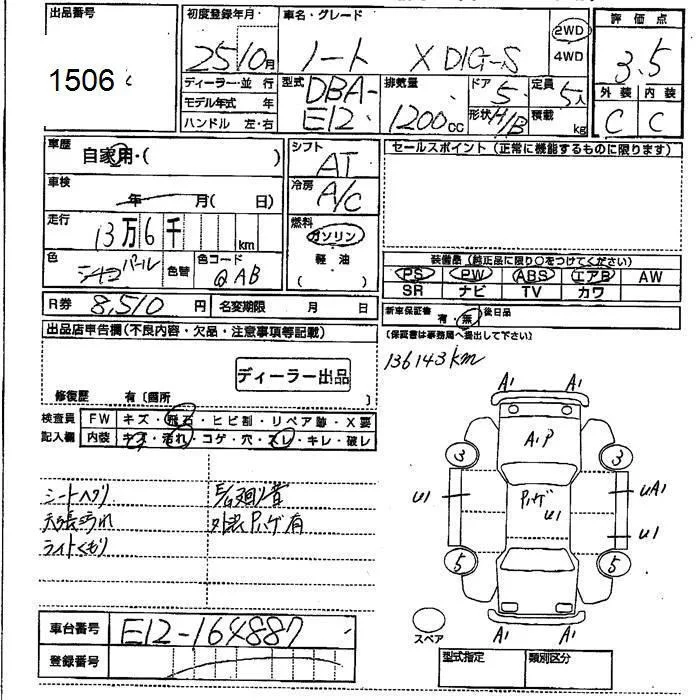 出品番号
1506
初度登録年月
25 10月
車名・グレード
ノート X DIG-S
2WD
4WD
評価点
3.5
ディーラー・並 行
モデル年式 年
ハンドル 左・右
型式
DBA-
E12
排気量
1200cc
ドア
5
定員
5人
形状
H/B
積載
kg
外装 内装
C C
車歴
自家用・( )
車検
年 月( 日)
走行
13万6千 km
色
シロ パール
色替
色コード
QAB
シフト
AT
冷房
A/C
燃料
ガソリン
軽油
( )
セールスポイント(正常に機能するものに限ります)
装備品(純正品に限り○をつけてください)
PS PW ABS エアB AW
SR ナビ TV カワ
R券 8,510円 名変期限 月 日
新車保証書 有・無 後日品
(保証書は事務局へ提出して下さい)
136143km
出品店申告欄(不良内容・欠品・注意事項等記載)
ディーラー出品
修復歴 有(箇所
検査員
記入欄
FW キズ・飛石・ヒビ割・リペア跡・X要
内装 キズ・汚れ・コゲ・穴・スレ・キレ・破レ
シートヘタリ
天張汚れ
ライトくもり
外装Pハゲ有
A1 A1
A1P
3 3
U1
Pハゲ
U1
UA1
U1
5 5
A1 A1
スペア
車台番号
E12-164887
登録番号
型式指定 類別区分